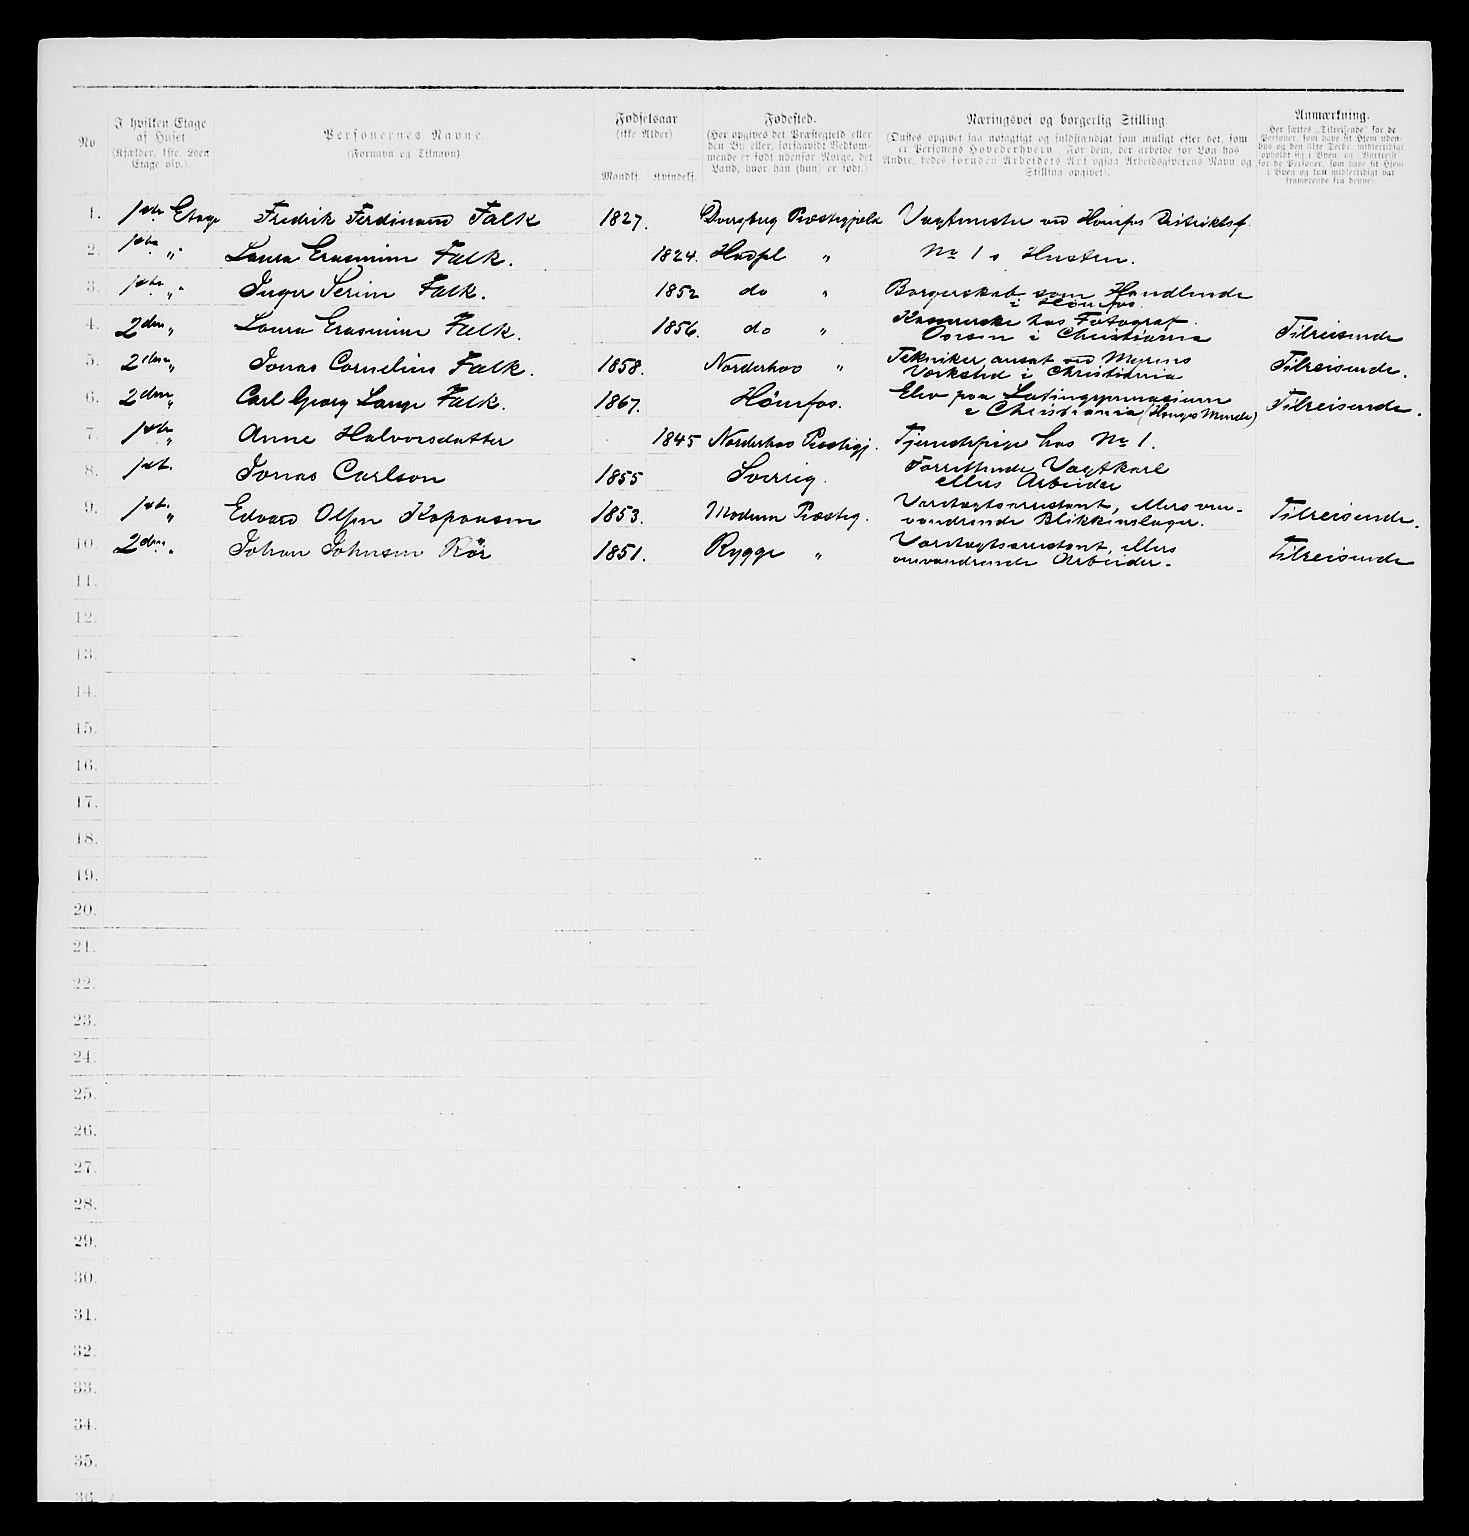 No
I hvilken Etage af Huset (Kjælder, 1ste, 2den Etage osv.).
Personernes Navne. (Fornavn og Tilnavn)
Fødselsaar (ikke Alder) Mandkj. Kvindekj.
Fødested. (Her opgives det Præstegjeld eller den By eller, forsaavidt Vedkommende er født udenfor Norge, det Land, hvor han (hun) er født.)
Næringsvei og borgerlig Stilling. (Ønskes opgivet saa nøiagtigt og fuldstændigt som muligt efter det, som er Personens Hovederhverv. For dem, der arbeide for Løn hos Andre, bedes foruden Arbeidets Art ogsaa Arbeidsgiverens Navn og Stilling opgivet).
Anmærkning. Her sættes „Tilreisende" for de Personer, som have sit Hjem udenbys og den 31te Decbr. midlertidigt opholdt sig i Byen, og „Bortreist" for de Personer, som have sit Hjem i Byen og kun midlertidigt var fraværende fra denne)
1. 1ste Etage Fredrik Ferdinand Falk 1827. Dverberg Præstegjeld Vagtmester ved Hønefos Distriktsf.
2. 1ste „ Laura Erasmine Falk. 1824. Hadsel „ No 1's Hustru.
3. 1ste „ Inger Serine Falk. 1852 do „ Borgerskab som Handlende
i Hönefos.
4. 2den „ Laura Erasmine Falk. 1856. do „ hos Fotograf
i Christiania Tilreisende
5. 2den „ Jonas Cornelius Falk. 1858. Norderhov „ Tekniker ansat ved Myrens
Værksted i Christiania Tilreisende.
6. 2den „ Carl Georg Lange Falk. 1867. Hönefos. Elev paa Latingymnasium
i Christiania (Hougs Minde) Tilreisende.
7. 1ste „ Anne Halvorsdatter 1845 Norderhov Præstegj. Tjenestepige hos No 1.
8. 1ste. Jonas Carlson 1855 Sverrig. Forrettende Vagtkarl
ellers Arbeider
9. 1ste „ Edvard Olsen Kopansen 1853. Modum Præsteg. Varetægtsarrestant, ellers om-
vandrende Blikkenslager. Tilreisende.
10. 2den „ Johan Johnsen Rör 1851. Rygge „ Varetægtsarrestant, ellers
omvandrende Arbeider. Tilreisende
11.
12.
13.
14.
15.
16.
17.
18.
19.
20.
21.
22.
23.
24.
25.
26.
27.
28.
29.
30.
31.
32.
33.
34.
35.
36.